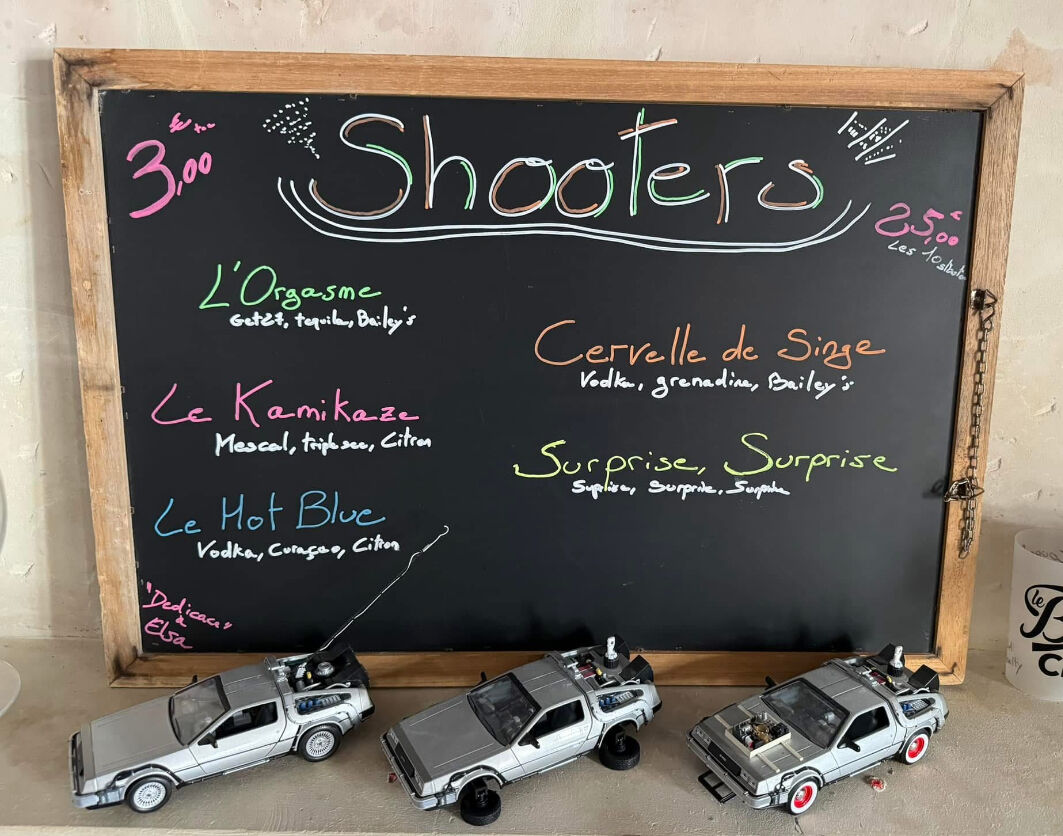 3,00
Shooters
25,00€
Les 10
L'Orgasme
Get27, tequila, Bailey's
Cervelle de Singe
Vodka, grenadine, Bailey's
Le Kamikaze
Mescal, triple sec, Citron
Surprise, Surprise
Suprise, Surprise, Surprise
Le Hot Blue
Vodka, Curaçao, Citron
"Dedicace"
à
Elsa
le
B